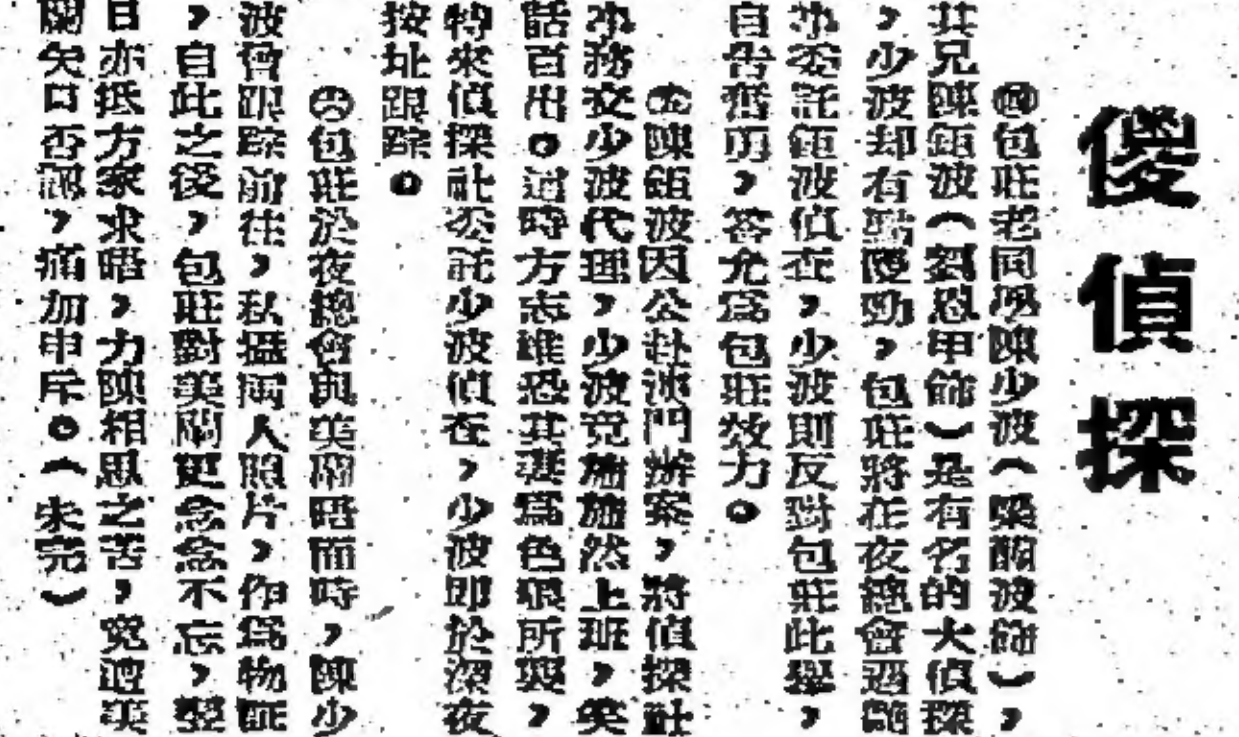 傻偵探
㈣包旺老同學陳少波(梁醒波飾),
其兄陳鉅波(劉恩甲飾)是有名的大偵探
,少波却有點傻勁,包旺將在夜總會遇艷
事委託鉅波偵查,少波則反對包旺此擧,
自告奮勇,答允爲包旺效力。
㈤陳鉅波因公赴澳門辦案,將偵探社
事務交少波代理,少波竟施施然上班,笑
話百出。這時方志雄恐其妻爲色狼所誤,
特來偵探社委託少波偵查,少波即於深夜
按址跟踪。
㈥包旺於夜總會與美蘭晤面時,陳少
波曾跟踪前往,私攝兩人照片,作爲物証
,自此之後,包旺對美蘭更念念不忘,翌
日亦抵方家求晤,力陳相思之苦,寃遭美
蘭矢口否認,痛加申斥。(未完)